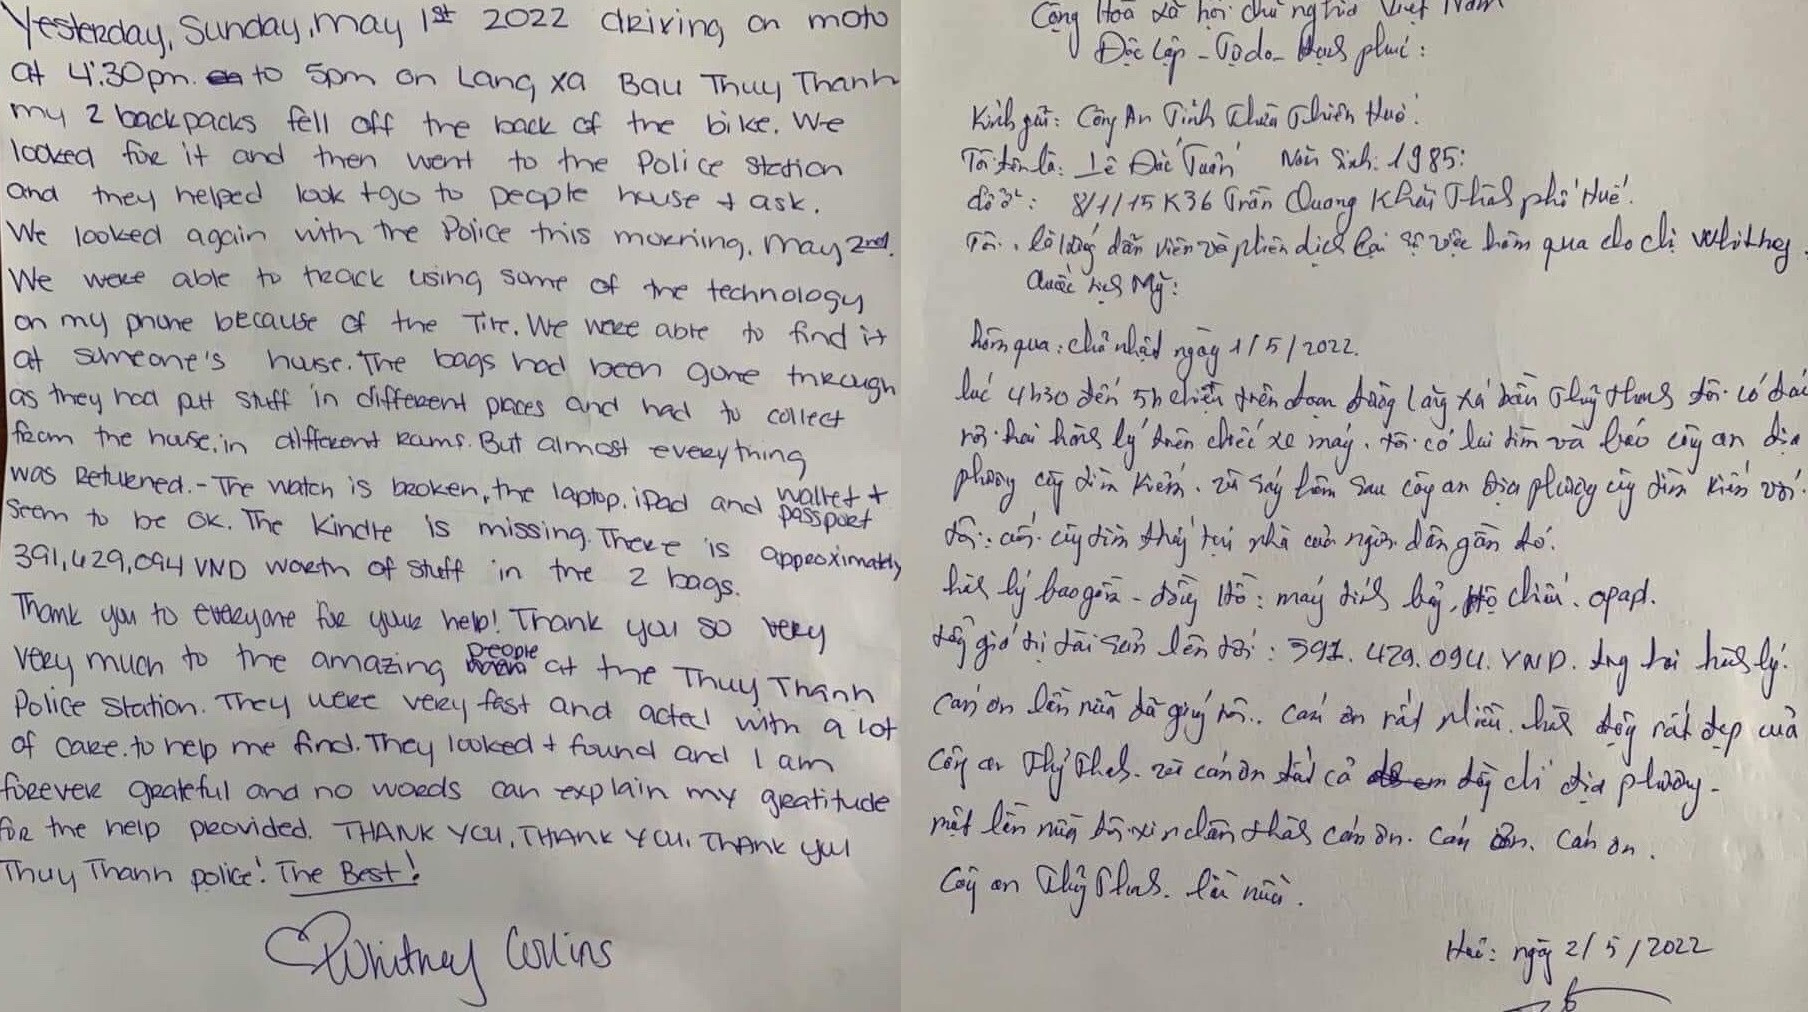 Yesterday, Sunday, May 1st 2022 driving on moto
at 4:30pm. to 5pm on Lang xa Bau Thuy Thanh
my 2 backpacks fell off the back of the bike. We
looked for it and then went to the Police Station
and they helped look + go to people house + ask.
We looked again with the Police this morning, May 2nd.
We were able to track using some of the technology
on my phone because of the Tile. We were able to find it
at someone's house. The bags had been gone through
as they had put stuff in different places and had to collect
from the house, in different rooms. But almost everything
was Returned. - The watch is broken, the laptop, iPad and wallet + passport
seem to be OK. The Kindle is missing. There is approximately
391,429,094 VND worth of stuff in the 2 bags.
Thank you to everyone for your help! Thank you so very
very much to the amazing people at the Thuy Thanh
Police Station. They were very fast and acted with a lot
of care. to help me find. They looked + found and I am
forever grateful and no words can explain my gratitude
for the help provided. THANK YOU, THANK YOU, Thank you
Thuy Thanh police! The Best!
Whitney Collins
Cộng Hoà xã hội chủ nghĩa Việt Nam
Độc Lập - Tự do - Hạnh phúc:
Kính gửi: Công An Tỉnh Thừa Thiên Huế.
Tôi tên là: Lê Đắc Tuấn Năm Sinh: 1985:
địa chỉ: 8/1/15 K36 Trần Quang Khải Thành phố Huế.
Tôi. là hướng dẫn viên và phiên dịch lại sự việc hôm qua cho chị Whitney.
Quốc tịch Mỹ:
hôm qua: chủ nhật ngày 1/5/2022.
lúc 4h30 đến 5h chiều trên đoạn đường làng xá bàu Thuỷ Thanh tôi có
rơi hai hành lý trên chiếc xe máy. tôi có lui tìm và báo công an địa
phương cùng tìm kiếm. và sáng hôm sau công an địa phương cùng tìm kiếm với
tôi: cùng tìm thấy tại nhà của người dân gần đó.
hành lý bao gồm - đồng hồ: máy tính bảng, Hộ chiếu. opad.
tổng giá trị tài sản lên tới: 391.429.094.VND. trong hai hành lý.
cám ơn lần nữa đã giúp tôi.. cám ơn rất nhiều. hành động rất đẹp của
công an Thuỷ Thanh. và cám ơn tất cả đồng chí địa phương-
một lần nữa tôi xin chân thành cám ơn. cám ơn. cám ơn.
Công an Thuỷ Thanh. lần nữa.
Huế: ngày 2/5/2022